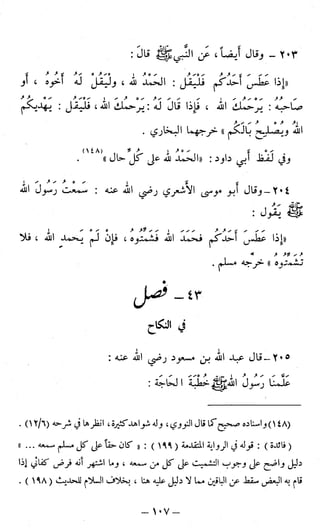 ٢٠٣ – وقال أيضاً، عَن النَّبي ﷺ قالَ :
«إذا عَطَسَ أَحَدُكم فَلْيَقُل : الحَمْدُ لله ، ولْيَقُلْ لَهُ أَخوهُ ، أو
صاحِبُهُ : يَرْحَمُكَ الله ، فإذا قالَ لَهُ : يَرْحَمُكَ الله، فَلْيَقُل : يَهْدِيكُمُ
اللهُ ويُصْلِحُ بالَكُم» خرجهما البخاري .
وفي لَفْظ أبي داود: «الحَمْدُ لله على كُلّ حال»(١٤٨) .
٢٠٤ –وقال أبو موسى الأشعري رضي الله عنه : سَمعْتُ رَسولَ الله
ﷺ يَقُول :
«إذا عَطَسَ أَحدكم فحَمَدَ الله فَشَمِّتوهُ، فإنْ لَم يَحمدِ الله ، فلا
تُشَمِّتوهُ» خرجّه مسلم .
٤٣ – فصل
في النكاح
٢٠٥ –قال عبد الله بن مسعود رضي الله عنه :
عَلَّمنَا رَسولُ الله ﷺ خُطْبَةَ الحاجَة :
(١٤٨) واسناده صحيح كما قال النووي، وله شواهد كثيرة، انظرها في شرحه (١٢/٦) .
(فائدة) : قوله في الرواية المتقدمة (١٩٩) : «كان حقاً على كل مسلم سمعه ...» ...
دليل واضح على وجوب التشميت على كل من سمعه ، وما اشتهر أنه فرض كفائي إذا
قام به البعض سقط عن الباقين مما لا دليل عليه هنا ، بخلاف السلام للحديث (١٩٨) .
– ١٠٧ –